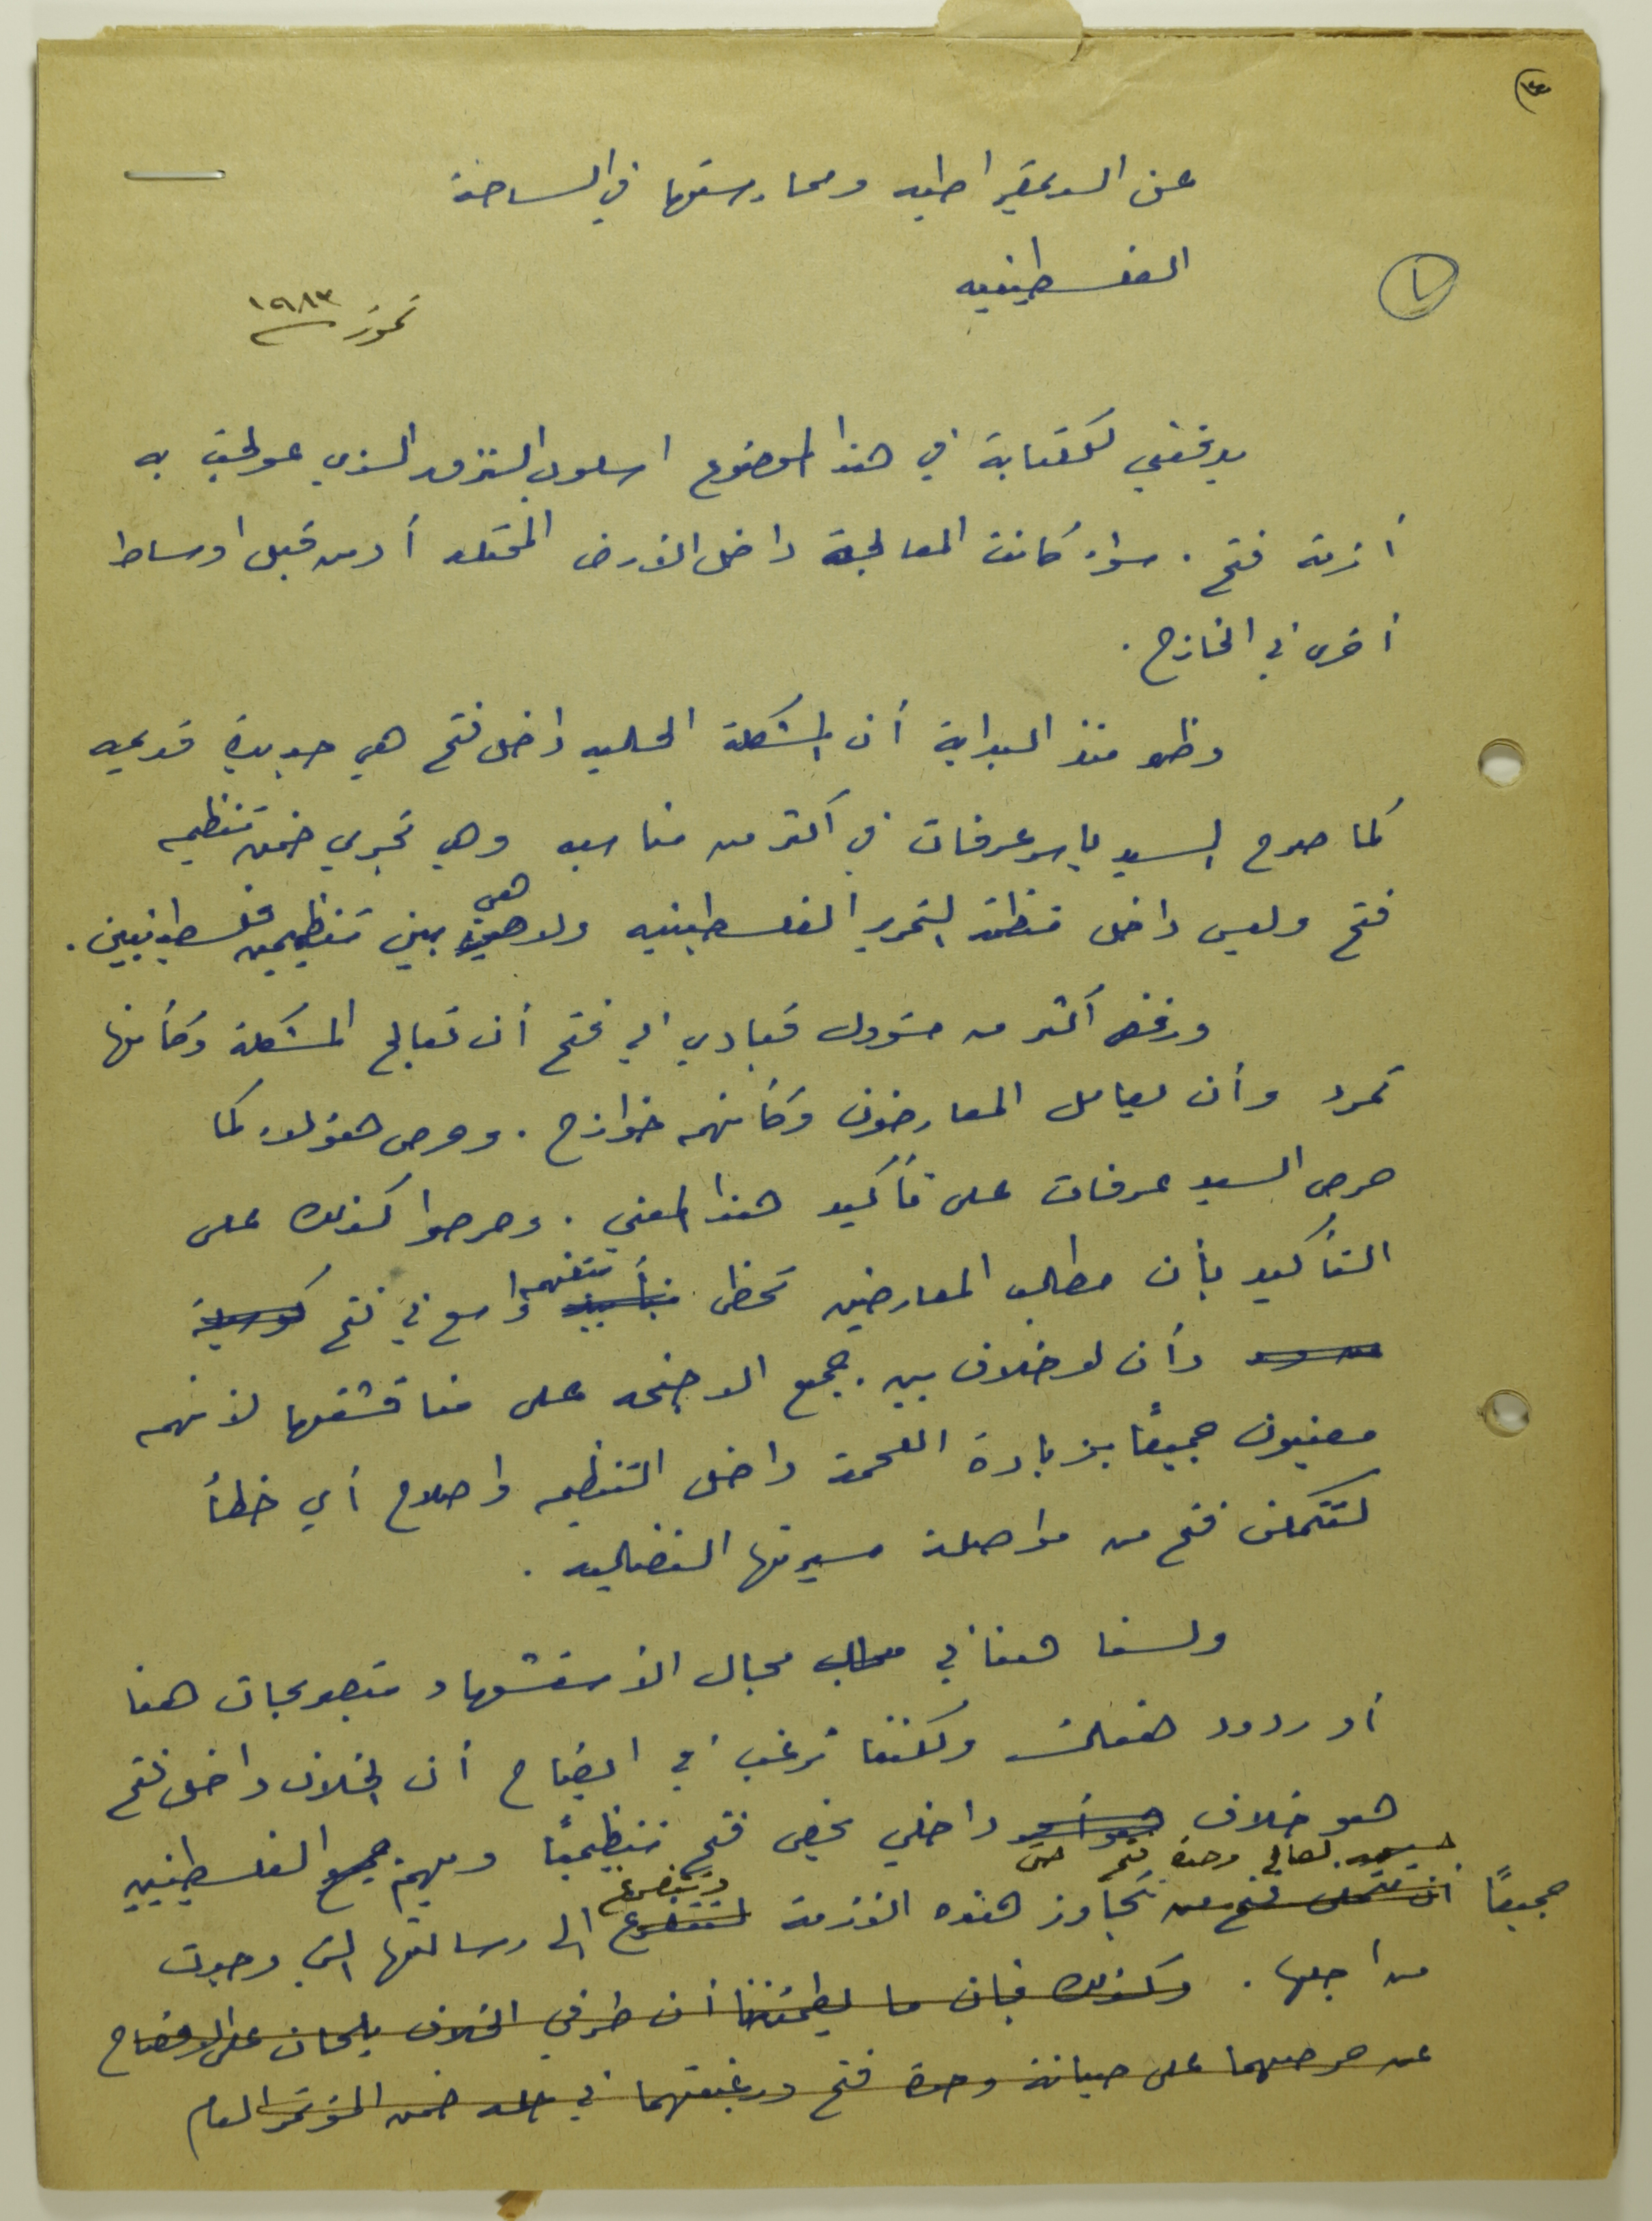 عن الديمقراطيه وممارستها في الساحة
الفلسطينيه
تموز ١٩٨٣
يدفعني للكتابة في هذا الموضوع اسلوب التنزق الذي عولجت به
أزمة فتح . سواء كانت المعالجة داخل الأرض المحتله أو من قبل اوساط
أخرى في الخارج .
وظهر منذ البداية أن المشكلة الحاليه داخل فتح هي جديدة قديمه
كما صرح السيد ياسر عرفات في أكثر من مناسبه وهي تجري ضمن تنظيم
فتح وليس داخل منظمة التحرير الفلسطينيه ولا هي بين تنظيمين فلسطينيين .
ورفض أكثر من مسؤول قيادي في فتح أن تعالج المشكلة وكأنها
تمرد وأن يعامل المعارضون وكأنهم خوارج . وحرص هؤلاء كما
حرص السيد عرفات على تأكيد هذا المعنى . وحرصوا كذلك على
التأكيد بأن مطالب المعارضين تحظى بتأييد بتفهم واسع في فتح
وأن لا خلاف بين جميع الاجنحه على مناقشتها لأنهم
معنيون جميعًا بزيادة اللحمة داخل التنظيم واصلاح أي خطأ
لتتمكن فتح من مواصلة مسيرتها النضاليه .
ولسنا هنا في مجال الأستشهاد بتصريحات هنا
أو ردود هناك ولكننا نرغب في ايضاح أن الخلاف داخل فتح
هو خلاف داخلي يخص فتح تنظيميًا ويهم جميع الفلسطينيين
لصالح وحدة فتح حتى
جميعًا ان تتمكن فتح من تتجاوز هذه الأزمة لتتفرغ وتتفرغ الى رسالتها التي وجدت
من اجلها . وكذلك فان ما يطمئننا أن طرفي الخلاف يلحان على الافصاح
عن حرصهما على صيانة وحدة فتح ورغبتهما في حله ضمن المؤتمر العام